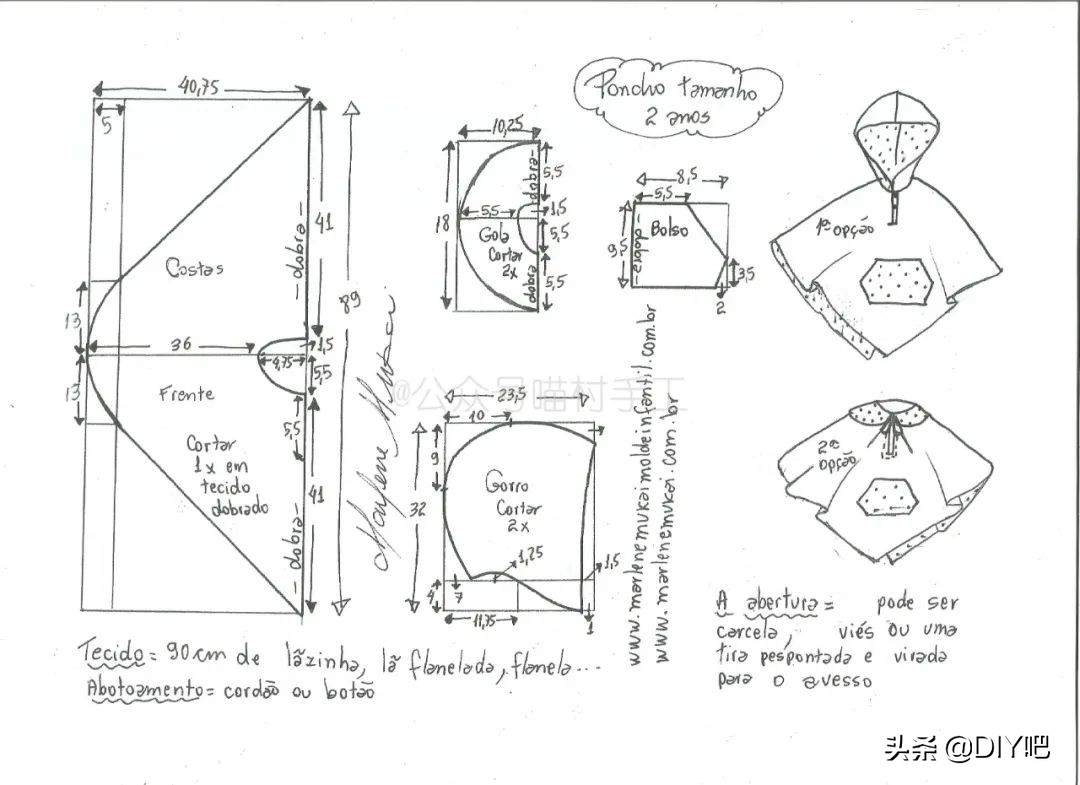 Poncho tamanho
2 anos
40,75
5
Costas
41
-dobra-
89
13
36
1,5
4,75
5,5
13
Frente
5,5
Cortar
1x em
tecido
dobrado
41
-dobra-
10,25
dobra-
5,5
18
5,5
1,5
Gola
Cortar
2x
5,5
dobra
5,5
8,5
5,5
Bolso
9,5
-dobra-
3,5
2
1ª opção
2ª
opção
Marlene Mukai
@公众号喵村手工
23,5
10
9
32
Gorro
Cortar
2x
1,25
1,5
4
7
11,75
1
www.marlenemukaimoldeinfantil.com.br
www.marlenemukai.com.br
A abertura = pode ser
carcela, viés ou uma
tira pespontada e virada
para o avesso
Tecido = 90cm de lãzinha, lã flanelada, flanela...
Abotoamento = cordão ou botão
头条 @DIY吧